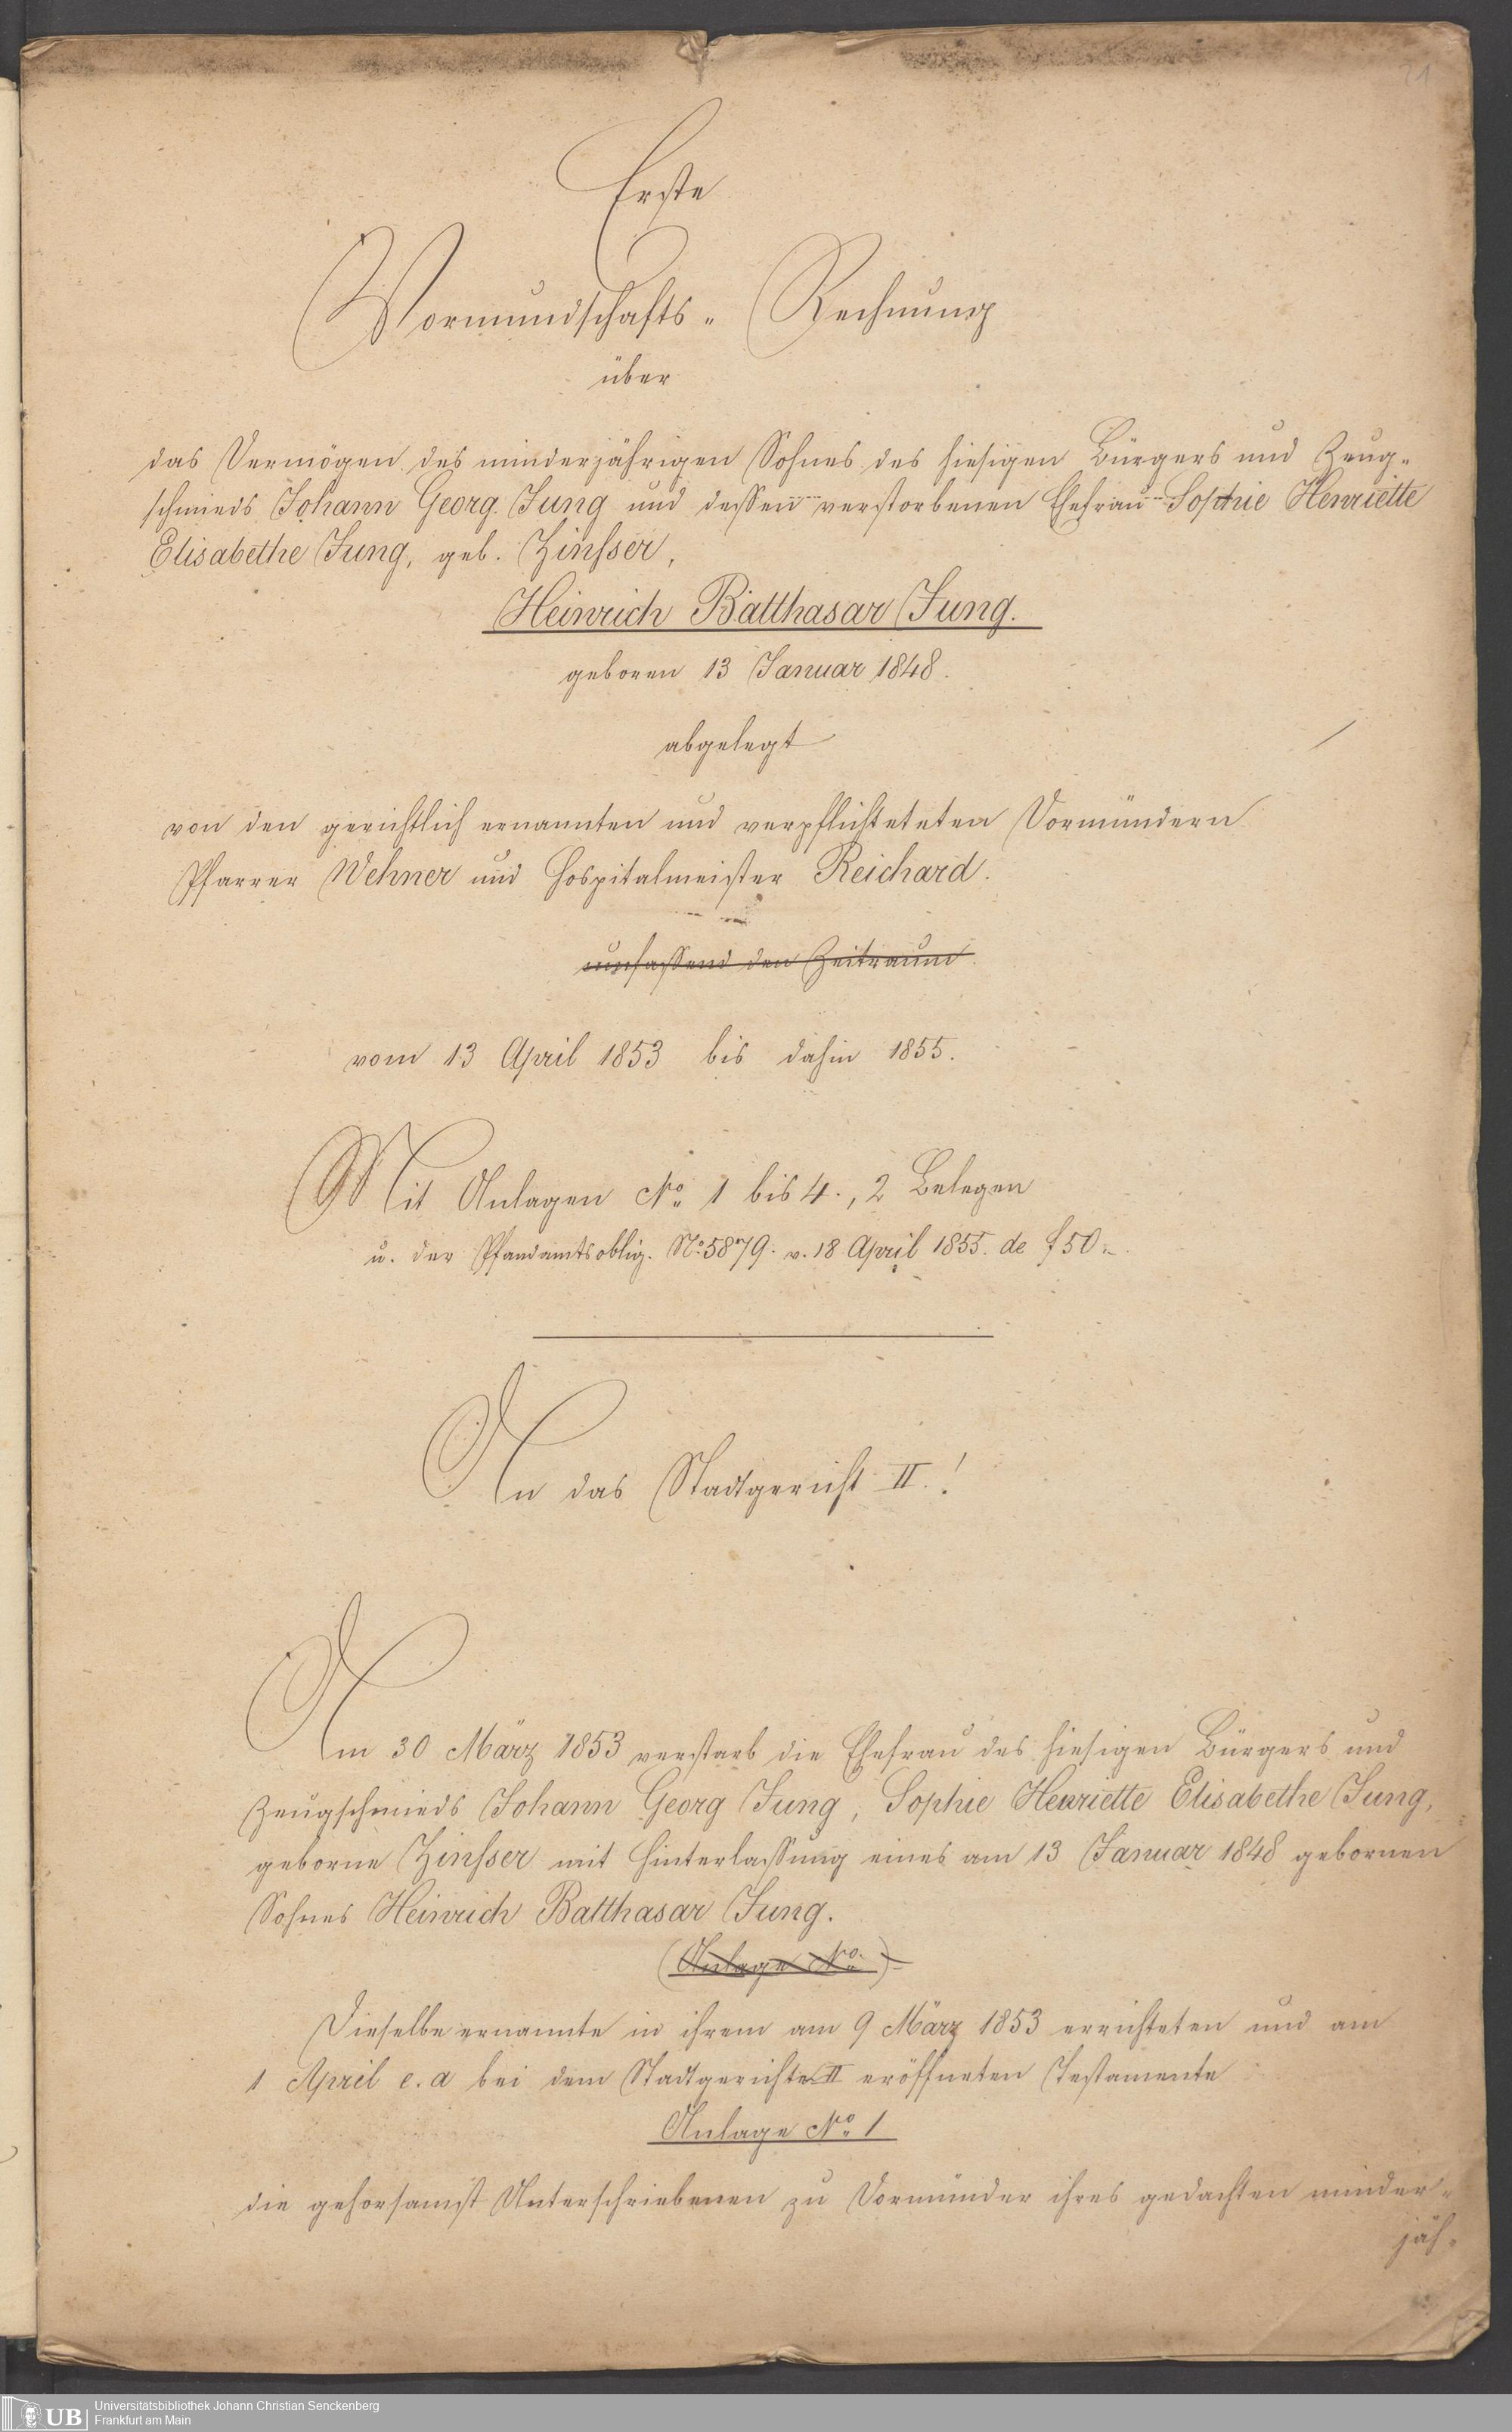 21
Erste
Vormundschafts- Rechnung
über
das Vermögen des minderjährigen Sohnes des hiesigen Bürgers und Zeug-
schmieds Johann Georg Jung und dessen verstorbenen Ehefrau Sophie Henriette
Elisabethe Jung, geb. Zinsser,
Heinrich Balthasar Jung.
geboren 13 Januar 1848.
abgelegt
von den gerichtlich ernannten und verpflichteteten Vormündern
Pfarrer Wehner und Hospitalmeister Reichard.
umfassend den Zeitraum
vom 13 April 1853 bis dahin 1855.
Mit Anlagen No 1 bis 4., 2 Belegen
u. der Pfandamtsoblig. No 5879. v. 18 April 1855. de f 50.-
An das Stadtgericht II.!
Am 30 März 1853 verstarb die Ehefrau des hiesigen Bürgers und
Zeugschmieds Johann Georg Jung, Sophie Henriette Elisabethe Jung,
geborne Zinsser mit Hinterlassung eines am 13 Januar 1848 gebornen
Sohnes Heinrich Balthasar Jung.
(Anlage No )
Dieselbe ernannte in ihrem am 9 März 1853 errichteten und am
1 April e. a bei dem Stadtgerichte II eröffneten Testamente
Anlage No 1
die gehorsamst Unterschriebenen zu Vormünder ihres gedachten minder-
jäh-
UB
Universitätsbibliothek Johann Christian Senckenberg
Frankfurt am Main